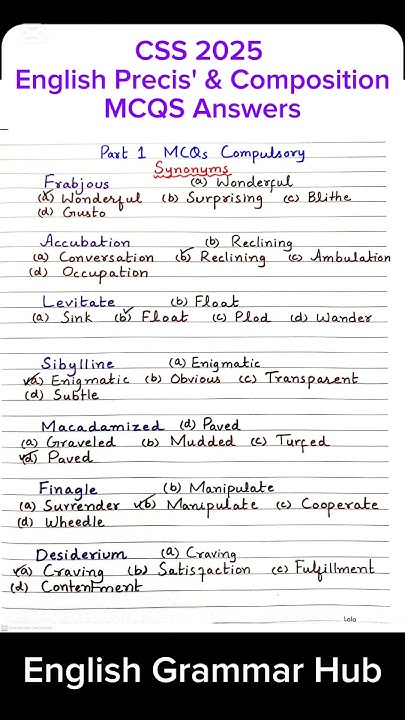 CSS 2025
English Precis' & Composition
MCQS Answers
Part 1 MCQs Compulsory
Synonyms
Frabjous (a) Wonderful
(a) Wonderful (b) Surprising (c) Blithe
(d) Gusto
Accubation (b) Reclining
(a) Conversation (b) Reclining (c) Ambulation
(d) Occupation
Levitate (b) Float
(a) Sink (b) Float (c) Plod (d) Wander
Sibylline (a) Enigmatic
(a) Enigmatic (b) Obvious (c) Transparent
(d) Subtle
Macadamized (d) Paved
(a) Graveled (b) Mudded (c) Turfed
(d) Paved
Finagle (b) Manipulate
(a) Surrender (b) Manipulate (c) Cooperate
(d) Wheedle
Desiderium (a) Craving
(a) Craving (b) Satisfaction (c) Fulfillment
(d) Contentment
Lola
English Grammar Hub